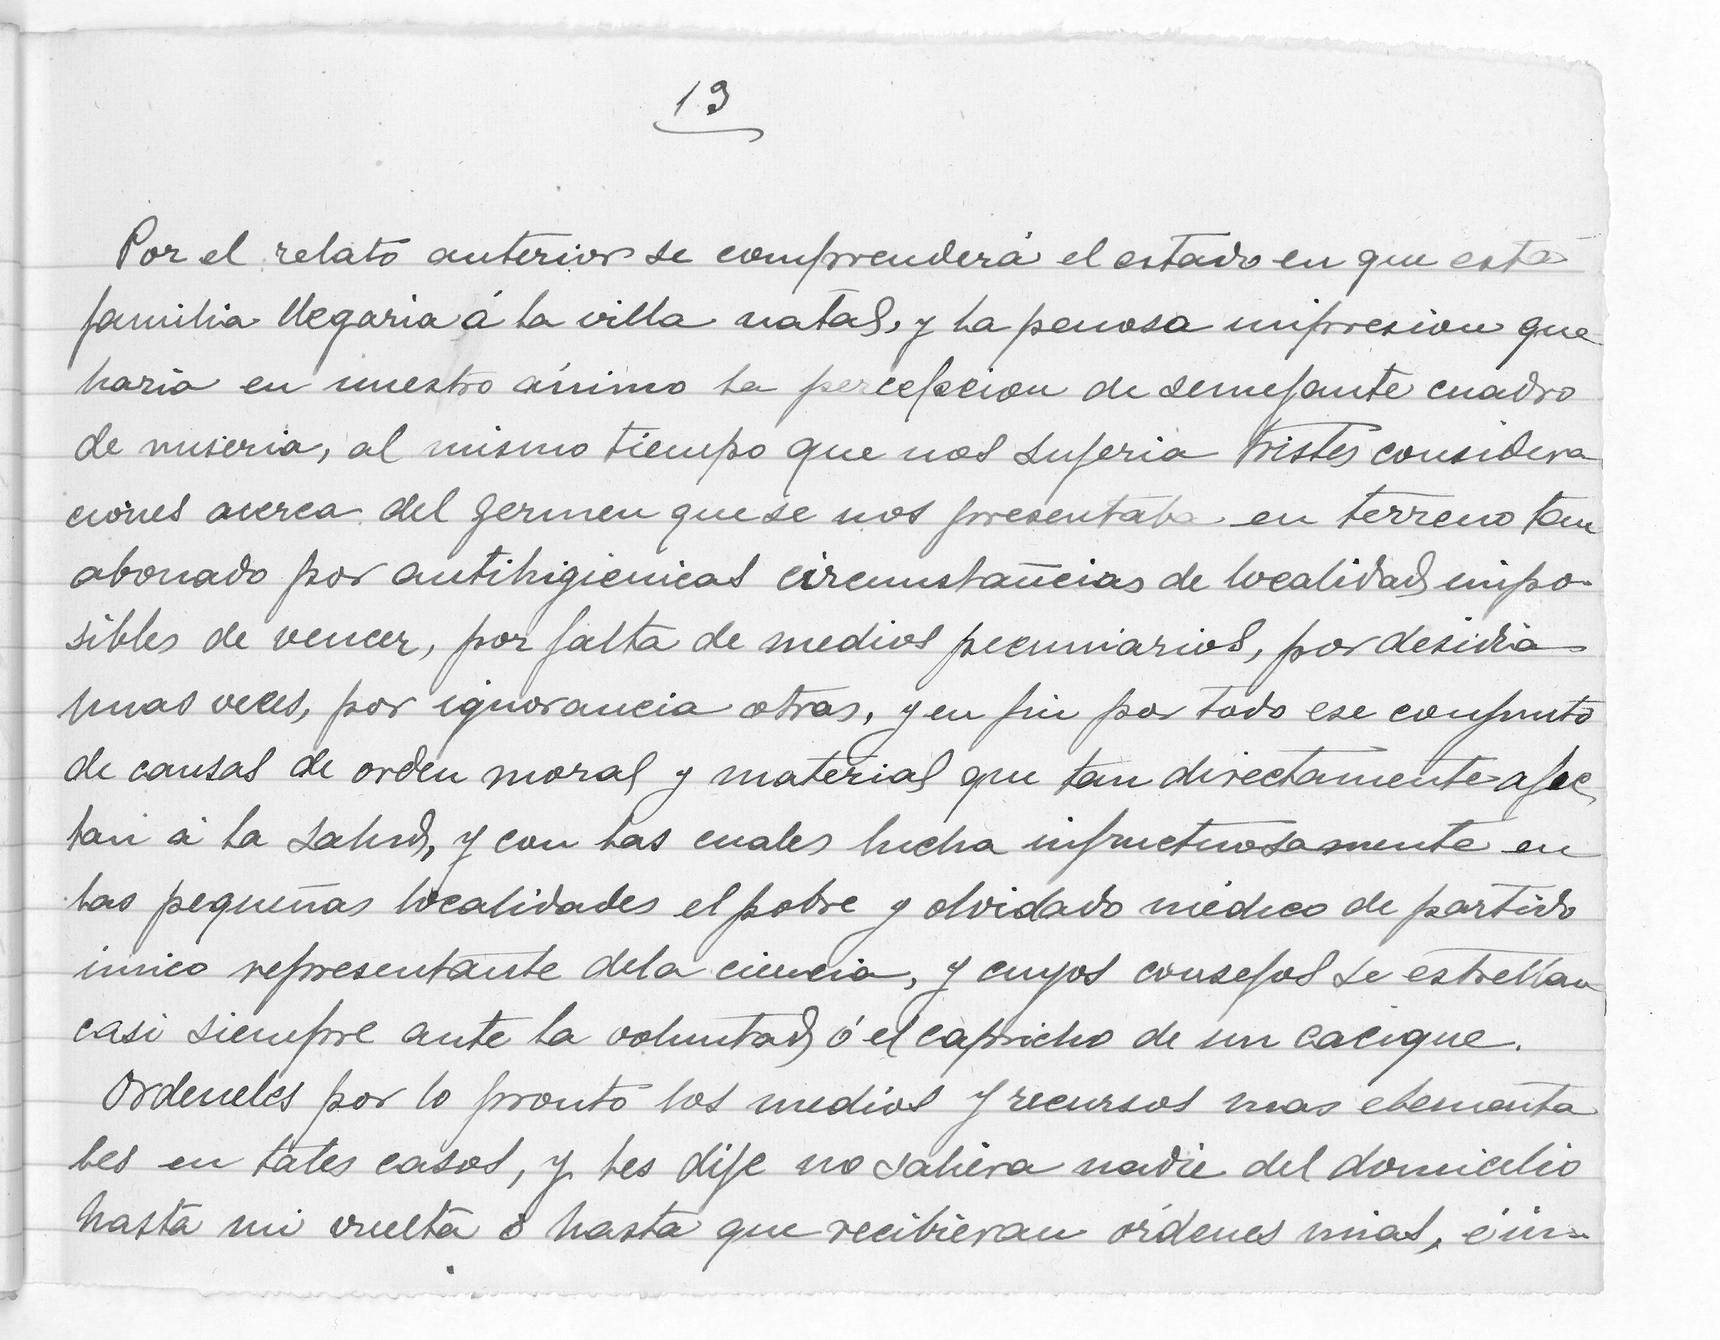 13
Por el relato anterior se comprenderá el estado en que esta
familia llegaria á la villa natal, y la penosa impresion que
haria en nuestro ánimo la percepcion de semejante cuadro
de miseria, al mismo tiempo que nos sujeria tristes considera
ciones acerca del germen que se nos presentaba en terreno tan
abonado por antihigienicas circunstancias de localidad impo-
sibles de vencer, por falta de medios pecuniarios, por desidia
unas veces, por ignorancia otras, y en fin por todo ese conjunto
de causas de orden moral y material que tan directamente afec
tan á la salud, y con las cuales lucha infructuosamente en
las pequeñas localidades el pobre y olvidado médico de partido
único representante dela ciencia, y cuyos consejos se estrellan
casi siempre ante la voluntad ó el capricho de un cacique.
Ordeneles por lo pronto los medios y recursos mas elementa
les en tales casos, y les dije no saliera nadie del domicilio
hasta mi vuelta ó hasta que recibieran órdenes mias, é in-